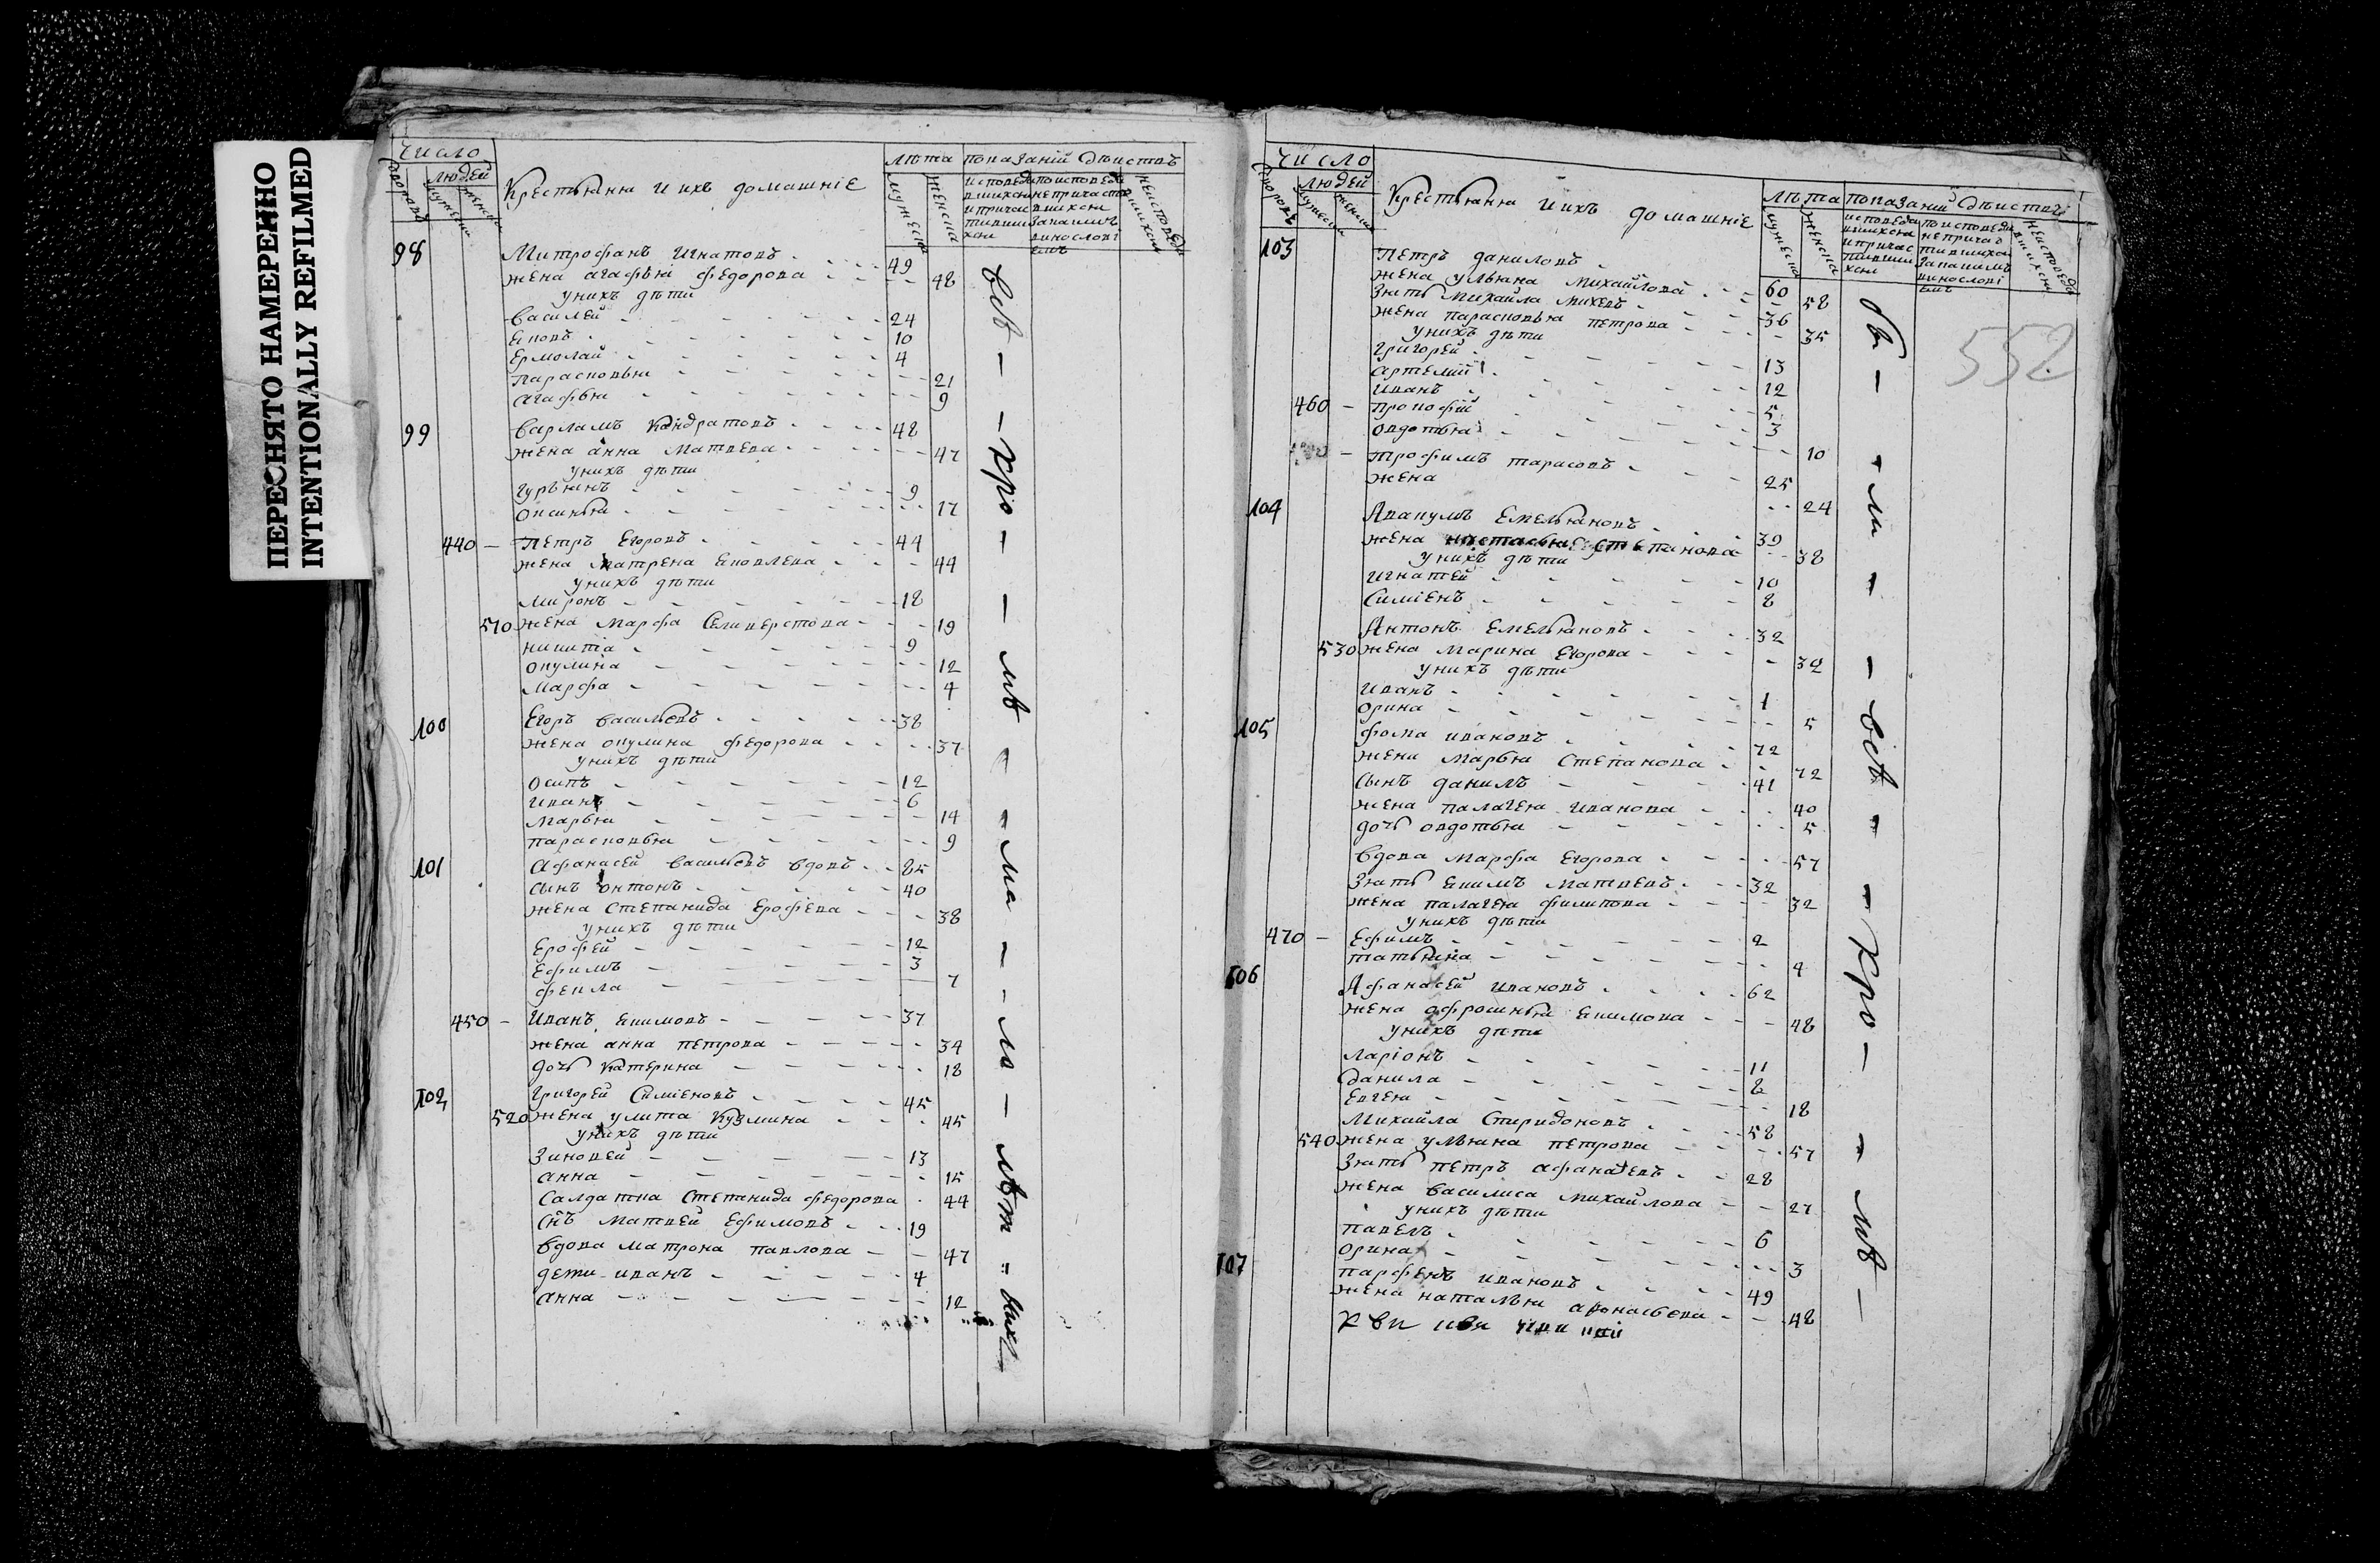 ПЕРЕСНЯТО НАМЕРЕННО
INTENTIONALLY REFILMED
Число
людей
дворовъ
мужеска
женска
Крестьяня ихъ домашніе
лѣта
мужеска
женска
показаній дѣиствъ
98 Митрофанъ Игнатовъ 49
жена агафья федорова 48
унихъ дѣти
василей 24
яковъ 10
Ермолай 4
парасковья 21
агафья 9
99 варламъ кандратовъ 48
жена анна матвева 47
унихъ дѣти
гурьянъ 9
оксинья 17
440 — петръ Егоровъ 44
жена матрена яковлева 44
унихъ дѣти
миронъ 18
510 жена марфа Селиверстова 19
никита 9
окулина 12
марфа 4
100 Егоръ васильевъ 38
жена окулина федорова 37
унихъ дѣти
осипъ 12
иванъ 6
марья 14
парасковья 9
101 афанасей васильевъ вдовъ 85
сынъ онтонъ 40
жена степанида Ерофева 38
унихъ дѣти
Ерофей 12
Ефимъ 3
фекла 7
450 — иванъ якимовъ 37
жена анна петрова 34
дочь катерина 18
102 григорей Симіеновъ 45
520 жена улита кузмина 45
унихъ дѣти
зиновей 13
анна 15
салдатка степанида федорова 44
снъ матвей Ефимовъ 19
вдова матрона павлова 47
дети иванъ 4
анна 12
число
людей
дворовъ
мужеска
женска
Крестьяня ихъ домашніе
лѣта
мужеска
женска
показаній дѣиствъ
552
103 петръ даниловъ 60
жена ульяна михайлова 58
зять михайла михевъ 36
жена парасковья петрова 35
унихъ дѣти
григорей 13
артемій 12
иванъ 5
460 — прокофій 3
овдотья 10
трофимъ тарасовъ 25
жена 24
104 Авакумъ Емельяновъ 39
жена настасья степанова 38
унихъ дѣти
игнатей 10
Симіенъ 8
Антонъ Емельяновъ 32
530 жена марина Егорова 32
унихъ дѣти
иванъ 1
орина 5
105 фома ивановъ 72
жена марья степанова 72
сынъ данилъ 41
жена палагея иванова 40
дочь овдотья 5
вдова марфа Егорова 57
зять якимъ матвевъ 32
жена палагея филипова 32
унихъ дѣти
470 — Ефимъ 2
татьяна 4
106 Афанасей ивановъ 62
жена афросинья якимова 48
унихъ дѣти
ларіонъ 11
данила 8
Евгея 18
михайла Спиридоновъ 58
540 жена ульяна петрова 57
зять петръ афанасевъ 28
жена василиса михайлова 27
унихъ дѣти
павелъ 6
орина 3
107 парфенъ ивановъ 49
жена наталья афонасьева 48